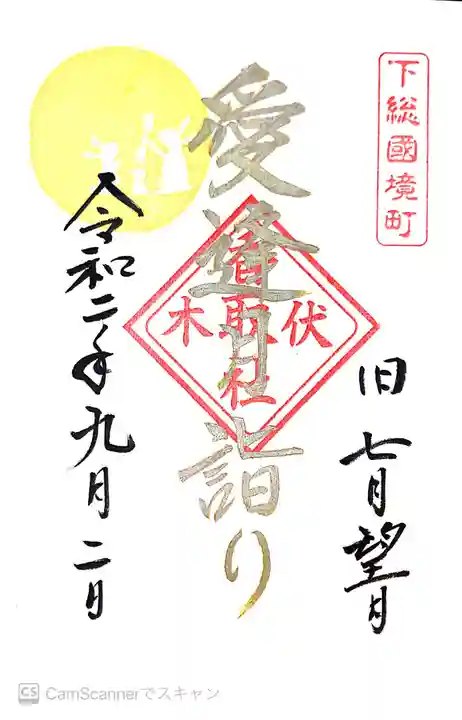 下総國境町
旧 七月望月
愛逢月詣り
伏木
香取社
令和二年九月二日
CS CamScannerでスキャン